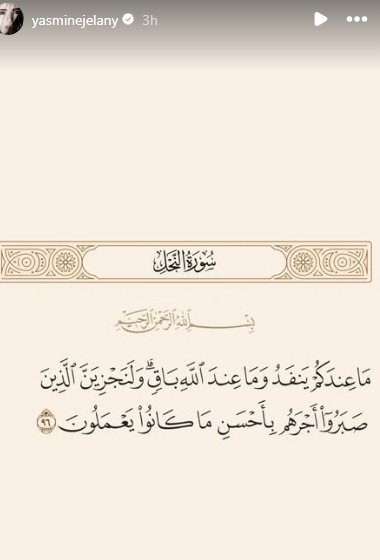 yasminejelany 3h
سُورَةُ النَّحْلِ
بِسْمِ اللَّهِ الرَّحْمَٰنِ الرَّحِيمِ
مَا عِندَكُمْ يَنفَدُ وَمَا عِندَ ٱللَّهِ بَاقٍۗ وَلَنَجْزِيَنَّ ٱلَّذِينَ
صَبَرُوٓا۟ أَجْرَهُم بِأَحْسَنِ مَا كَانُوا۟ يَعْمَلُونَ ٩٦